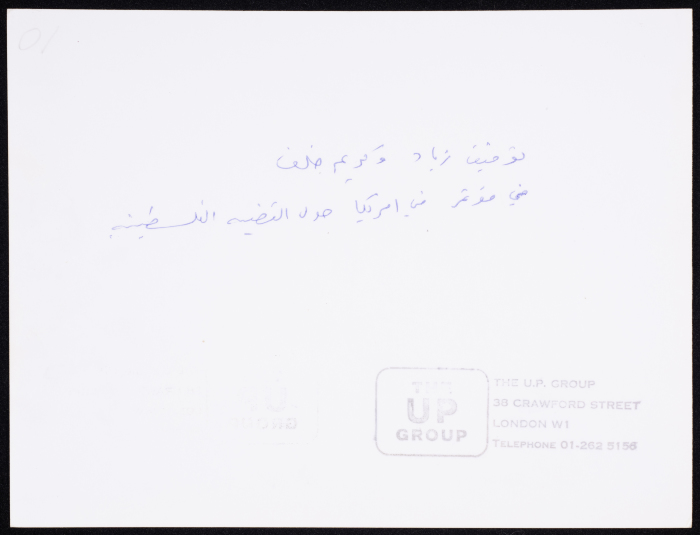 01
توفيق زياد وكريم خلف
في مؤتمر في امريكا حول القضيه الفلسطينيه
THE
UP
GROUP
THE U.P. GROUP
38 CRAWFORD STREET
LONDON W1
TELEPHONE 01-262 5156